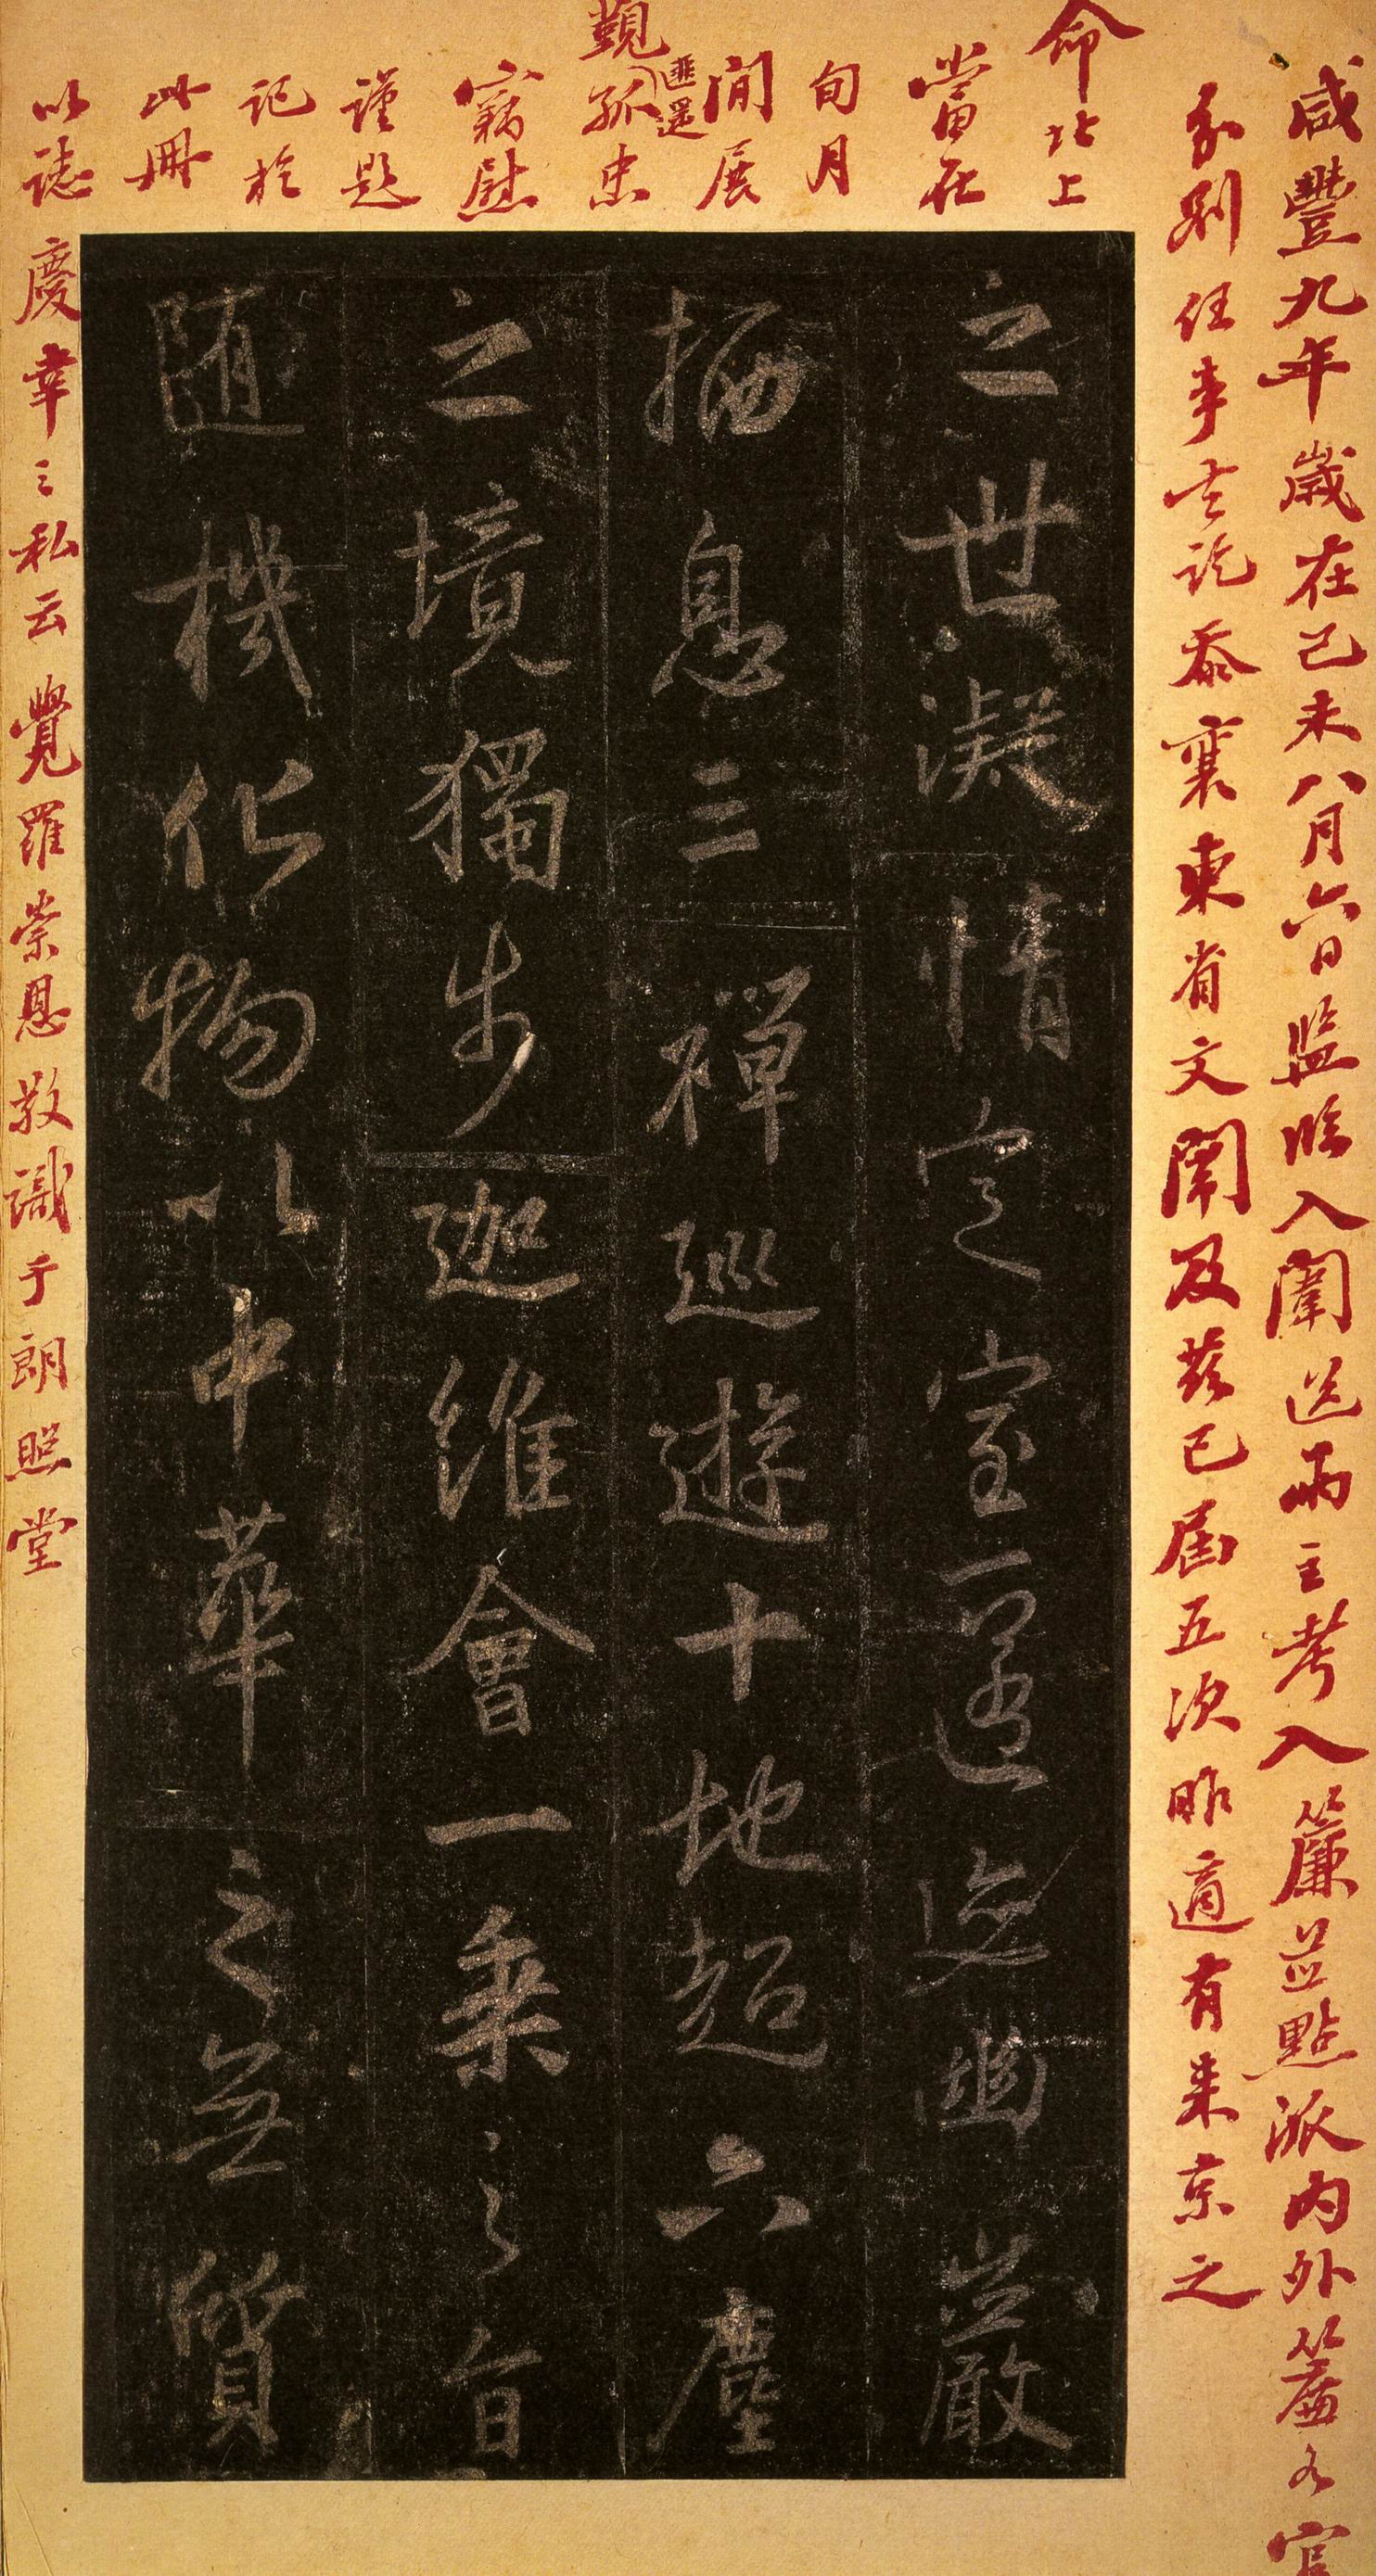 咸豐九年歲在己未八月六日監臨入闈送兩主考入簾並點派内外簾各官
分别任事去訖忝襄東省文闈及茲已届五次昨適有来京之
命北上
當在
旬月
間展
匪遥
覲孤忠
竊慰
謹題
記於
此冊
以誌慶幸之私云覺羅崇恩敬識于朗照堂
之世凝情定室匿迹幽巖
栖息三禪巡遊十地超六塵
之境獨步迦維會一乘之旨
随機化物以中華之無質